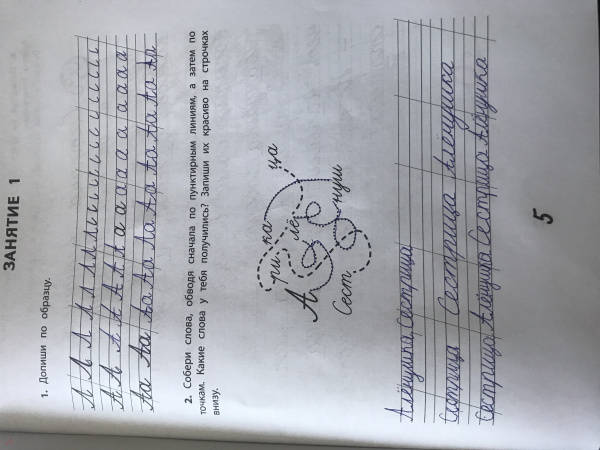 ЗАНЯТИЕ 1
1. Допиши по образцу.
Аа Аа Аа Аа Аа Аа Аа Аа Аа Аа Аа
2. Собери слова, обводя сначала по пунктирным линиям, а затем по
точкам. Какие слова у тебя получились? Запиши их красиво на строчках
внизу.
ри ка ца
А лё
Сест нуш
Алёнушка, Сестрица
Сестрица Сестрица Алёнушка
Сестрица Алёнушка Сестрица Алёнушка
5